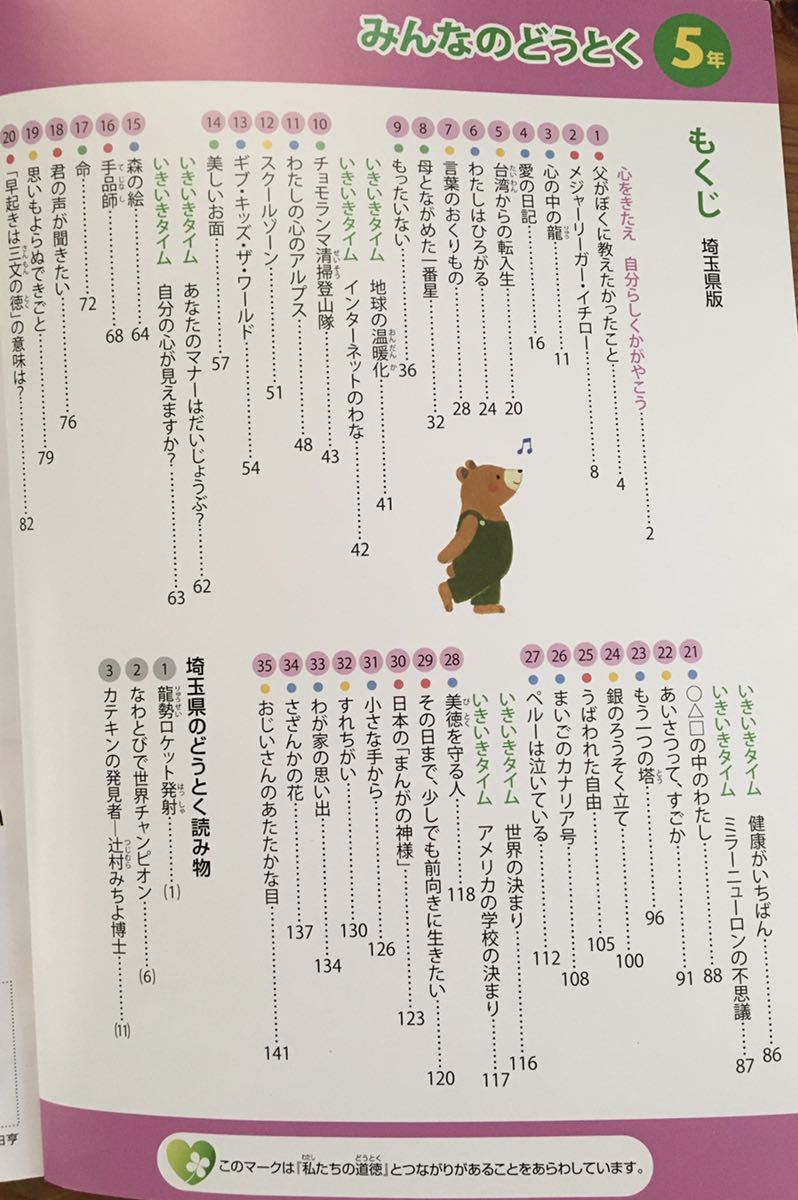 みんなのどうとく 5年
もくじ 埼玉県版
心をきたえ 自分らしくかがやこう……2
1 父がぼくに教えたかったこと……4
2 メジャーリーガー・イチロー……8
3 心の中の龍……11
4 愛の日記……16
5 台湾からの転入生……20
6 わたしはひろがる……24
7 言葉のおくりもの……28
8 母とながめた一番星……32
9 もったいない……36
いきいきタイム 地球の温暖化……41
いきいきタイム インターネットのわな……42
10 チョモランマ清掃登山隊……43
11 わたしの心のアルプス……48
12 スクールゾーン……51
13 ギブ・キッズ・ザ・ワールド……54
14 美しいお面……57
いきいきタイム あなたのマナーはだいじょうぶ?……62
いきいきタイム 自分の心が見えますか?……63
15 森の絵……64
16 手品師……68
17 命……72
18 君の声が聞きたい……76
19 思いもよらぬできごと……79
20 「早起きは三文の徳」の意味は?……82
いきいきタイム 健康がいちばん……86
いきいきタイム ミラーニューロンの不思議……87
21 ○△□の中のわたし……88
22 あいさつって、すごか……91
23 もう一つの塔……96
24 銀のろうそく立て……100
25 うばわれた自由……105
26 まいごのカナリア号……108
27 ペルーは泣いている……112
いきいきタイム 世界の決まり……116
いきいきタイム アメリカの学校の決まり……117
28 美徳を守る人……118
29 その日まで、少しでも前向きに生きたい……120
30 日本の「まんがの神様」……123
31 小さな手から……126
32 すれちがい……130
33 わが家の思い出……134
34 さざんかの花……137
35 おじいさんのあたたかな目……141
埼玉県のどうとく読み物
1 龍勢ロケット発射……(1)
2 なわとびで世界チャンピオン……(6)
3 カテキンの発見者―辻村みちよ博士……(11)
このマークは『私たちの道徳』とつながりがあることをあらわしています。